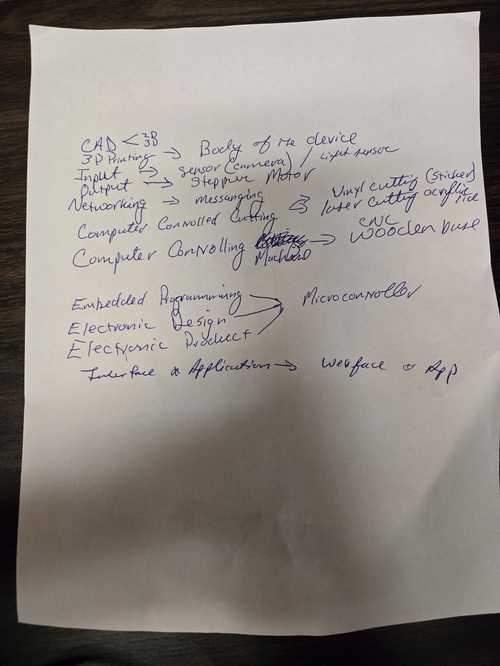 CAD < 2D 3D
3D Printing → Body of the device
Input → sensor (camera) / Light sensor
Output → Stepper Motor
Networking → messanging
Computer Controlled Cutting ⇒ Vinyl cutting (sticker) laser cutting acrylic
Computer Controlling Machine → CNC Wooden base
Embedded Programming
Electronic Design → Microcontroller
Electronic Product
Interface & Application → Webface or App